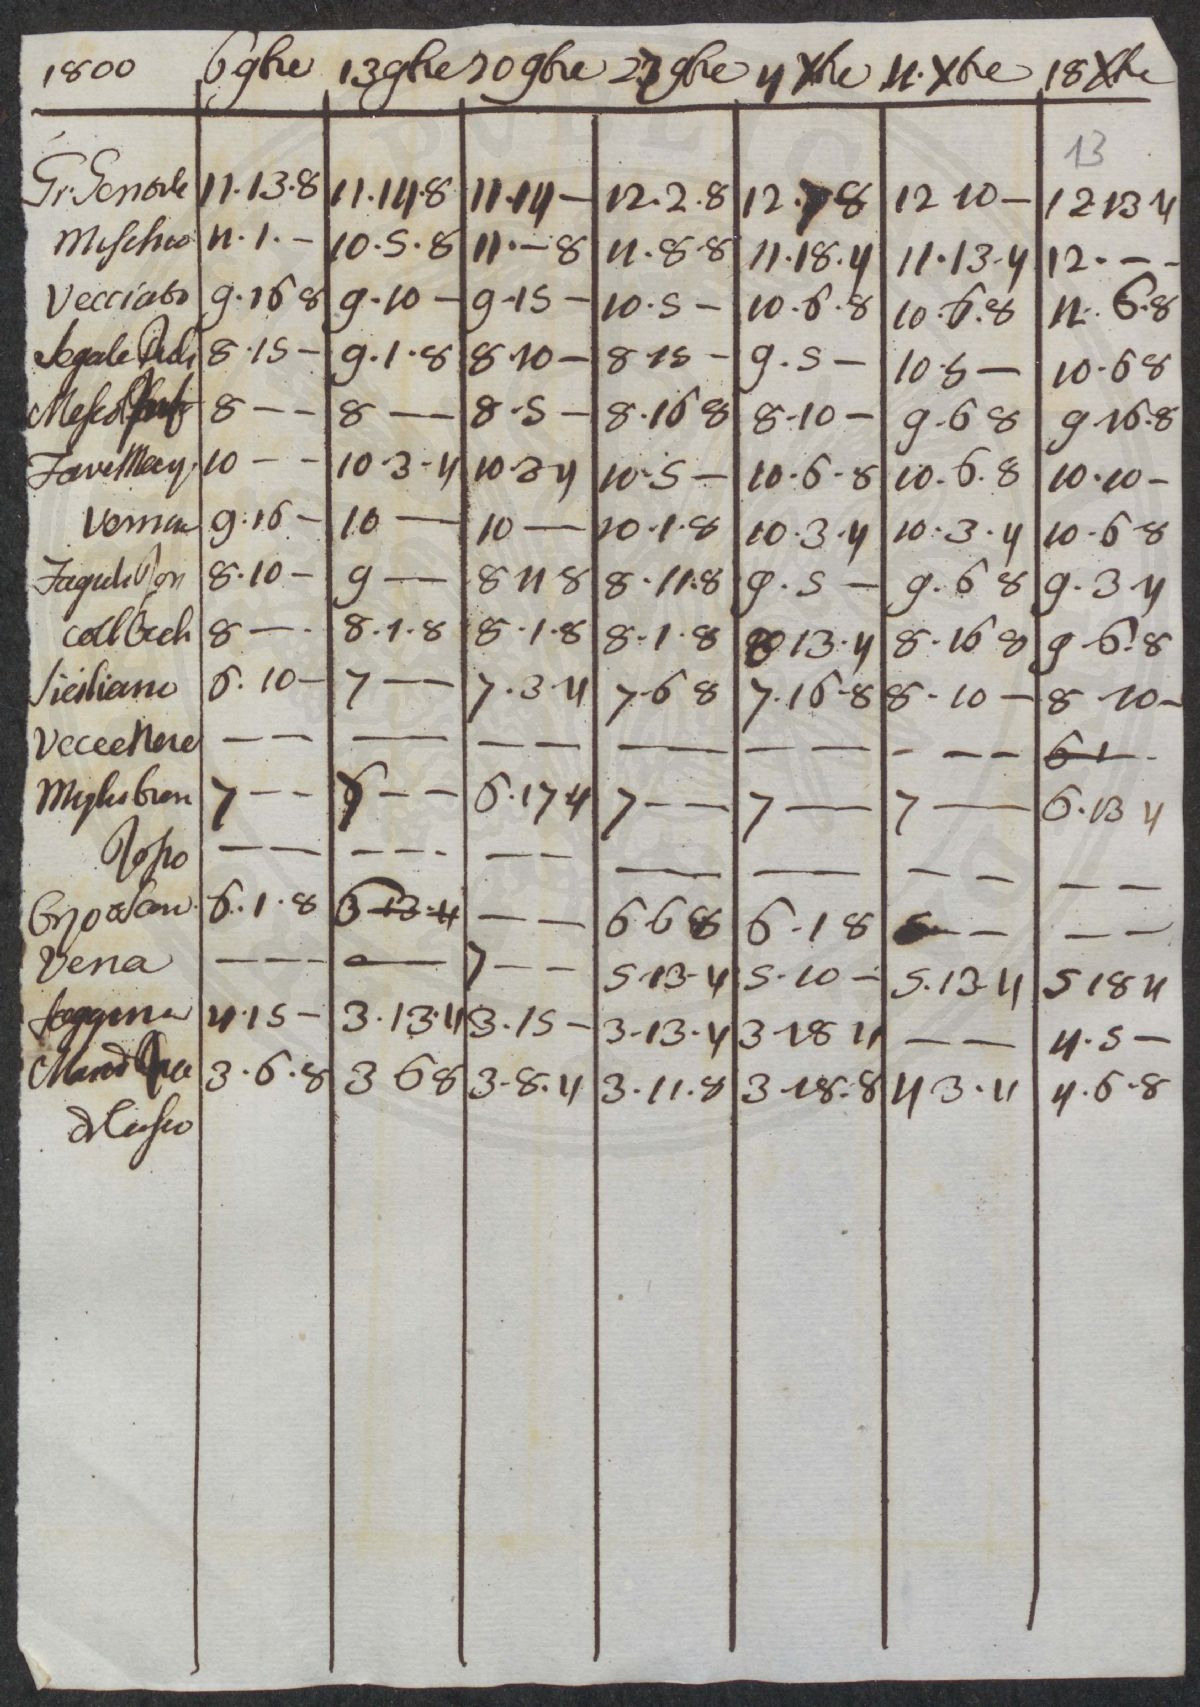 1800 6 9bre 13 9bre 20 9bre 27 9bre 4 Xbre 11. Xbre 18 Xbre
13
Gr. Gentile 11.13.8 11.14.8 11.14 — 12.2.8 12.7 8 12 10 — 12 13 4
Mischio 11.1. — 10.5.8 11. — 8 11.8.8 11.18.4 11.13.4 12. — —
Vecciato 9.16 8 9.10 — 9.15 — 10.5 — 10.6.8 10.6.8 11. 6.8
Segale 8.15 — 9.1.8 8.10 — 8 15 — 9.5 — 10.5 — 10.6 8
8 — — 8 — 8.5 — 8.16 8 8.10 — 9.6 8 9.16.8
Fave 10 — — 10.3.4 10.3 4 10.5 — 10.6.8 10.6.8 10.10 —
9.16 — 10 — 10 — 10.1.8 10.3.4 10.3.4 10.6 8
8.10 — 9 — 8 11 8 8.11.8 9.5 — 9.6 8 9.3.4
8 — . 8.1.8 8.1.8 8.1.8 8 13.4 8.16 8 9.6.8
Siciliano 6.10 — 7 — 7.3 4 7.6 8 7.16.8 8.10 — 8 10 —
Veccie Nere — — — — — — — — — — — — 6 1 .
7 — — 6 — — 6.17 4 7 — — 7 — 7 — 6.13 4
— — — — — — — — — — — — —
6.1.8 6 13.4 — — 6 6 8 6.1 8 — — — —
Vena — — — — 7 — — 5.13.4 5.10 — 5.13 4 5 18 4
Saggina 4.15 — 3.13.4 3.15 — 3.13.4 3.18 4 — — 4.5 —
3.6.8 3 6 8 3.8.4 3.11.8 3.18.8 4 3.4 4.6.8